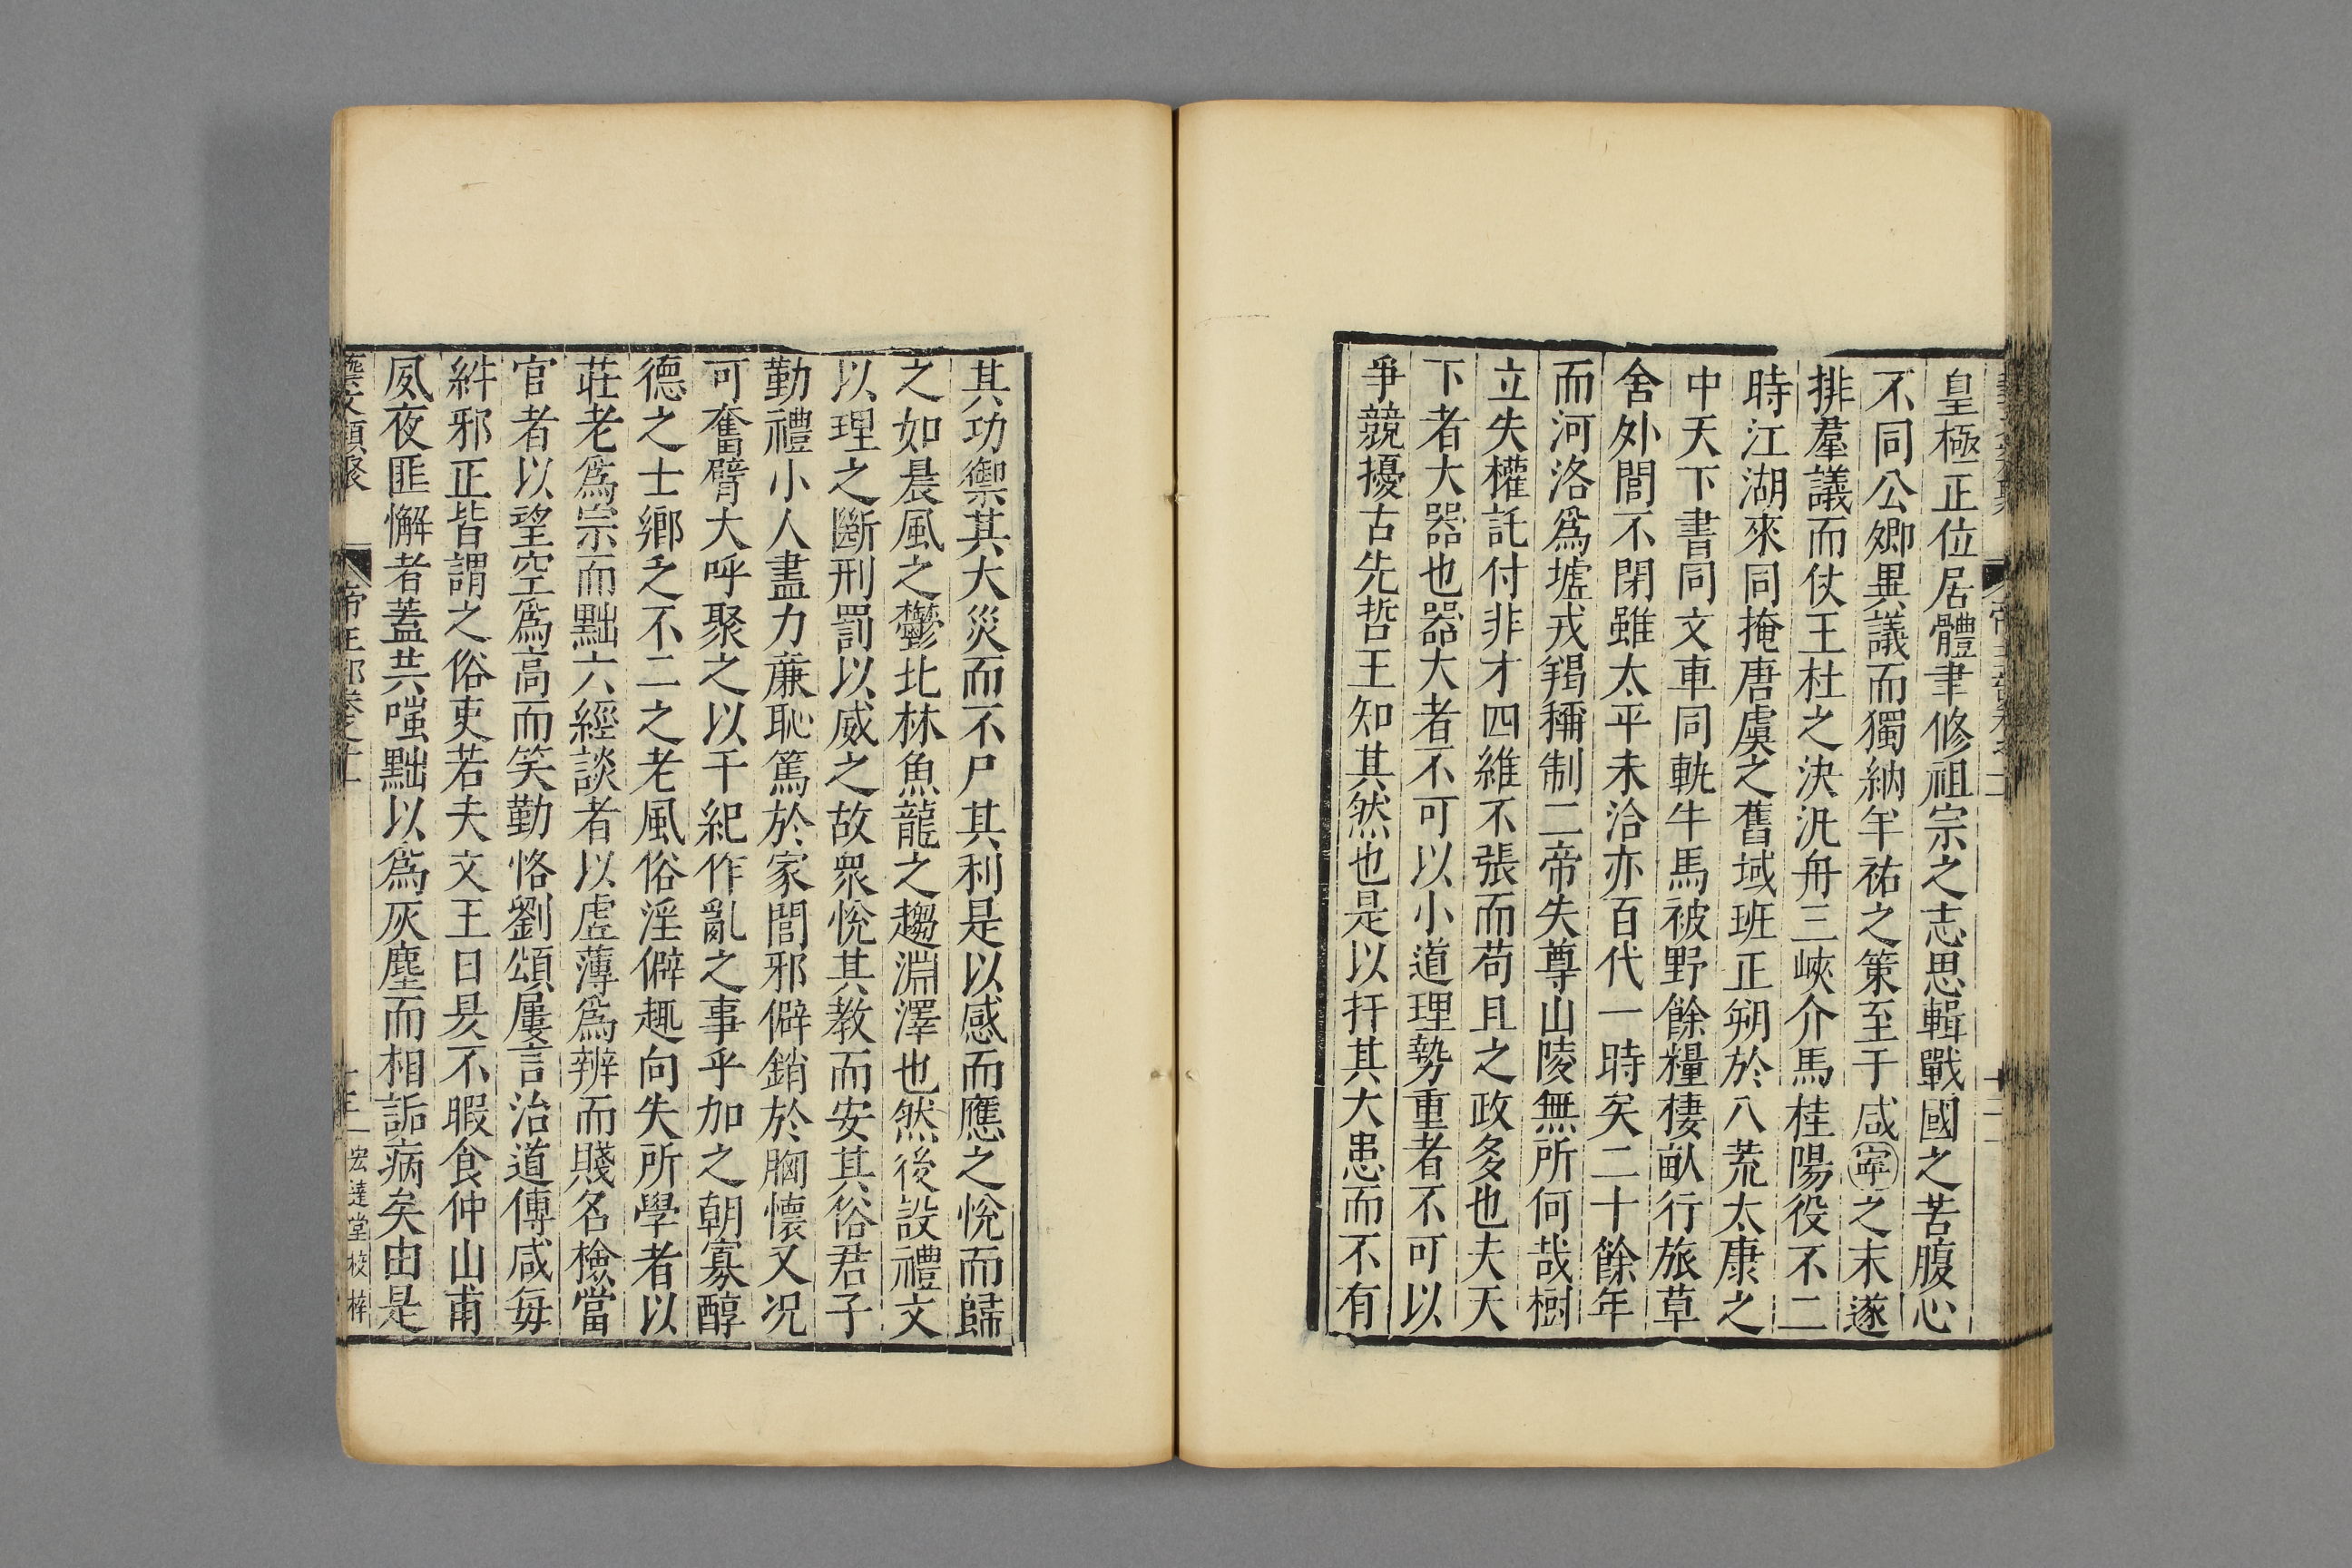 皇極正位居體聿修祖宗之志思輯戰國之苦腹心
不同公卿異議而獨納羊祜之策至于咸寧之末遂
排羣議而仗王杜之決汎舟三峽介馬桂陽役不二
時江湖來同掩唐虞之舊域班正朔於八荒太康之
中天下書同文車同軌牛馬被野餘糧棲畝行旅草
舍外閭不閉雖太平未洽亦百代一時矣二十餘年
而河洛爲墟戎羯稱制二帝失尊山陵無所何哉樹
立失權託付非才四維不張而苟且之政多也夫天
下者大器也器大者不可以小道理勢重者不可以
爭競擾古先哲王知其然也是以扞其大患而不有
其功禦其大災而不尸其利是以感而應之悅而歸
之如晨風之鬱北林魚龍之趨淵澤也然後設禮文
以理之斷刑罰以威之故衆悅其教而安其俗君子
勤禮小人盡力廉恥篤於家閭邪僻銷於胸懷又况
可奮臂大呼聚之以干紀作亂之事乎加之朝寡醇
德之士鄉乏不二之老風俗淫僻趣向失所學者以
莊老爲宗而黜六經談者以虛薄爲辨而賤名檢當
官者以望空爲高而笑勤恪劉頌屢言治道傅咸每
糾邪正皆謂之俗吏若夫文王日昃不暇食仲山甫
夙夜匪懈者蓋共嗤黜以爲灰塵而相詬病矣由是
藝文類聚 帝王部卷之十一 十三 宏達堂校梓